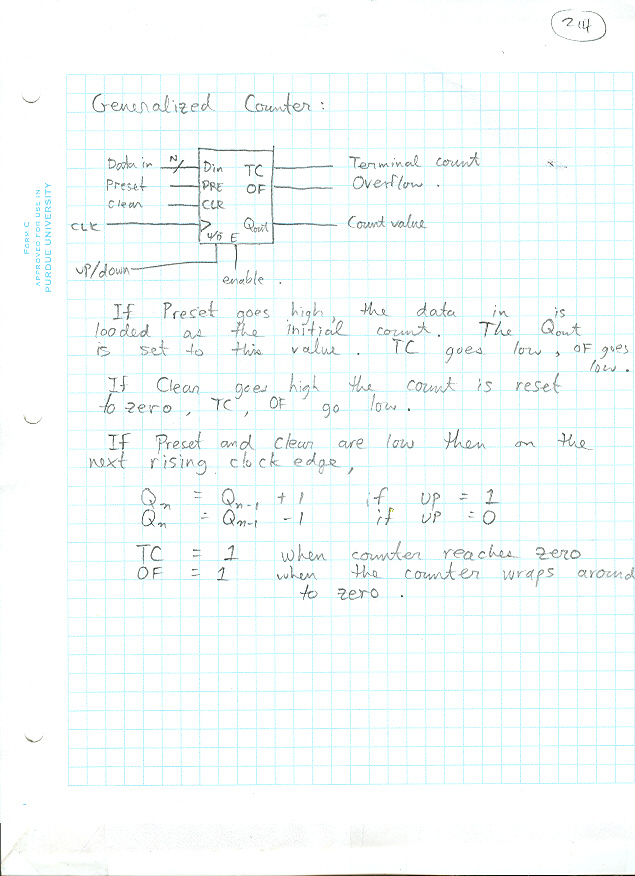 214
FORM C
APPROVED FOR USE IN
PURDUE UNIVERSITY
Generalized Counter:
Data in N Din TC Terminal count
Preset PRE OF Overflow.
Clear CLR
CLK Qout Count value
U/D E
up/down
enable.
If Preset goes high, the data in is
loaded as the initial count. The Qout
is set to this value. TC goes low, OF goes
low.
If Clear goes high the count is reset
to zero, TC, OF go low.
If Preset and Clear are low then on the
next rising clock edge,
Qn = Qn-1 + 1 if UP = 1
Qn = Qn-1 - 1 if UP = 0
TC = 1 when counter reaches zero
OF = 1 when the counter wraps around
to zero.